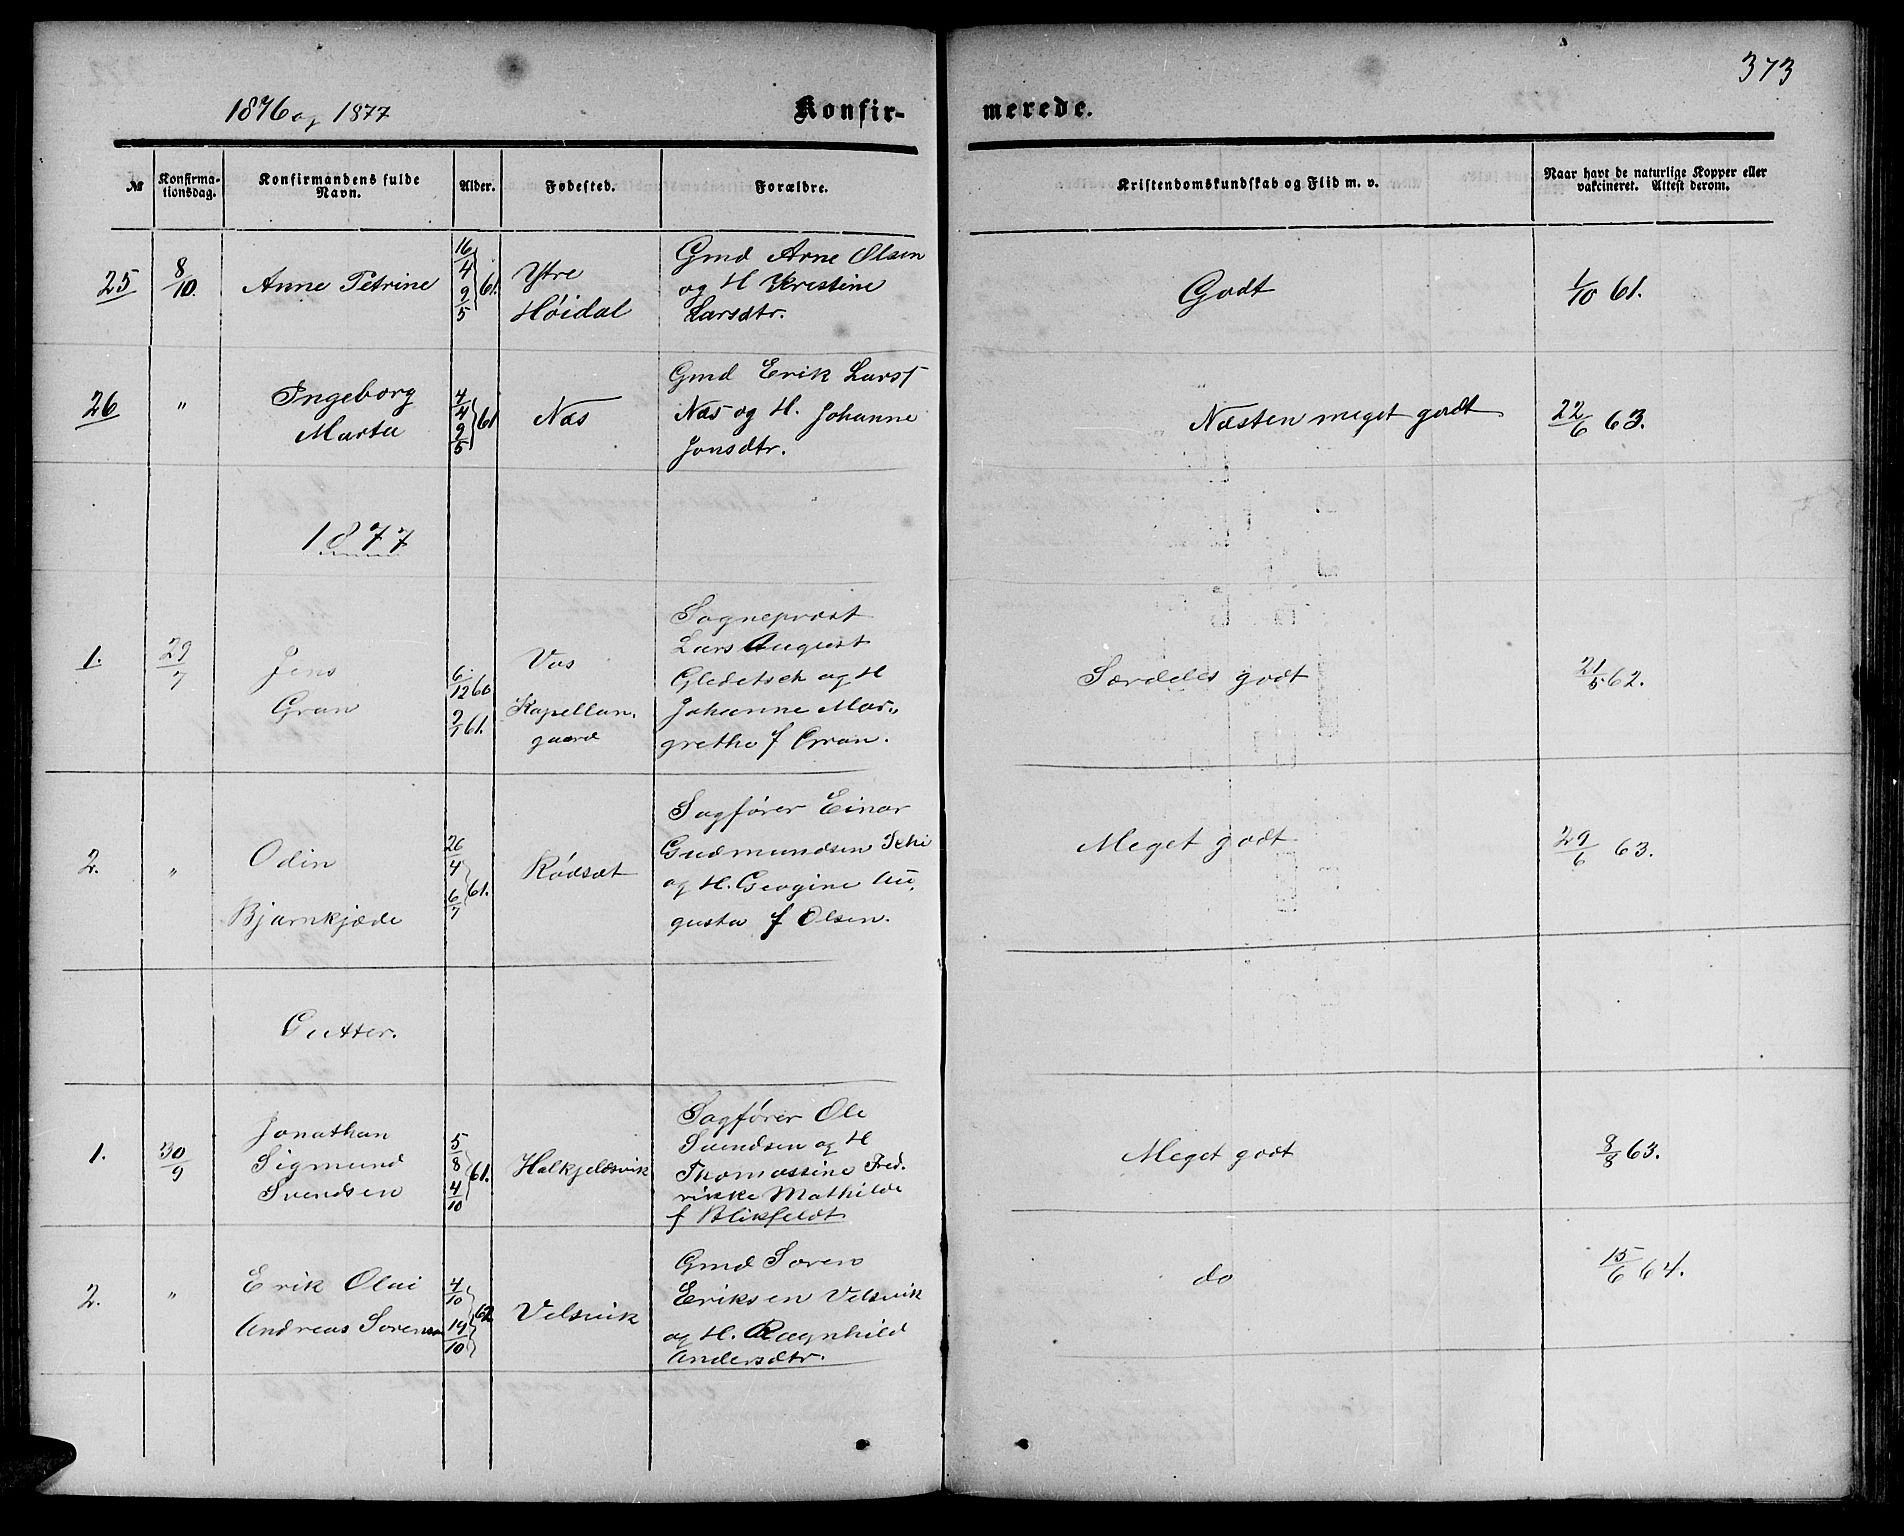 373
1876 og 1877
Konfir-
merede.
№
Konfirma-
tionsdag.
Konfirmandens fulde
Navn.
Alder.
Fødested.
Forældre.
Kristendomskundskab og Flid m. v.
Naar havt de naturlige Kopper eller
vakcineret. Attest derom.
25 8/10. Anne Petrine 16/4 9/5 61. Ytre
Høidal
Gmd Arne Olsen
og H Kristine
Larsdtr.
Godt
1/10 61.
26 " Ingeborg
Marta
4/4 9/5 61 Næs
Gmd Erik Lars f
Næs og H. Johanne
Jonsdtr.
Næsten meget godt
22/6 63.
1877
1. 29/7 Jens
Gran
6/12 60
61.
Vos
Kapellan,
gaard
Sogneprest
Lars August
og H
Johanne Mar„
grethe f Gran.
Særdeles godt
21/5 62.
2. " Odin
Bjarnkjæde
26/4 6/7 61. Rødsæt
Sagfører Einar
Gudmundsen
og H. Geogine Au,
gusta f Olsen.
Meget godt
29/6 63.
Gutter.
1. 30/9 Jonathan
Sigmund
Svendsen
5/8 4/10 61. Halkjeldsvik
Sagfører Ole
Svendsen og H
Thomassine Fred.
rikke Mathilde
f Blikfeldt
Meget godt
8/8 63.
2. " Erik Olai
Andreas Sorensen
4/10 19/10 62 Velsvik
Gmd Soren
Eriksen Velsvik
og H. Ragnhild
Andersdtr.
do
15/6 64.